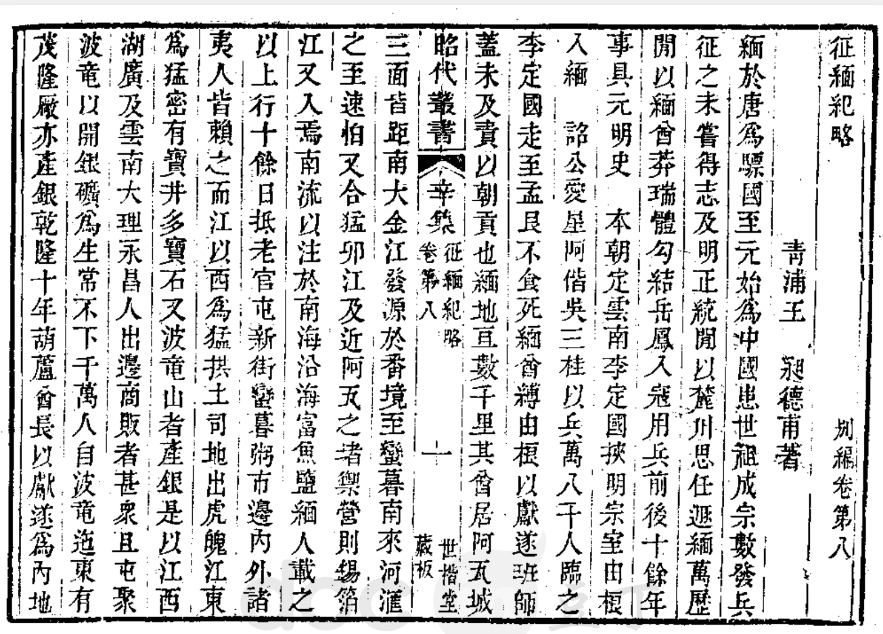 征緬紀略 別編卷第八
青浦王 昶德甫著
緬於唐爲驃國至元始爲中國患世祖成宗數發兵
征之未嘗得志及明正統閒以麓川思任遯緬萬歷
閒以緬酋莽瑞體勾結岳鳳入寇用兵前後十餘年
事具元明史 本朝定雲南李定國挾明宗室由根
入緬 詔公愛星阿偕吳三桂以兵萬八千人臨之
李定國走至孟艮不食死緬酋縛由根以獻遂班師
蓋未及責以朝貢也緬地亘數千里其酋居阿瓦城
昭代叢書 辛集 征緬紀略 卷第八 一 世楷堂 藏板
三面皆距南大金江發源於番境至蠻暮南來河滙
之至速怕又合猛卯江及近阿瓦之堵禦營則錫箔
江又入焉南流以注於南海沿海富魚鹽緬人載之
以上行十餘日抵老官屯新街蠻暮粥市邊內外諸
夷人皆賴之而江以西爲猛拱土司地出虎魄江東
爲猛密有寶井多寶石又波竜山者產銀是以江西
湖廣及雲南大理永昌人出邊商販者甚衆且屯聚
波竜以開銀礦爲生常不下千萬人自波竜迤東有
茂隆廠亦產銀乾隆十年葫蘆酋長以獻遂爲內地